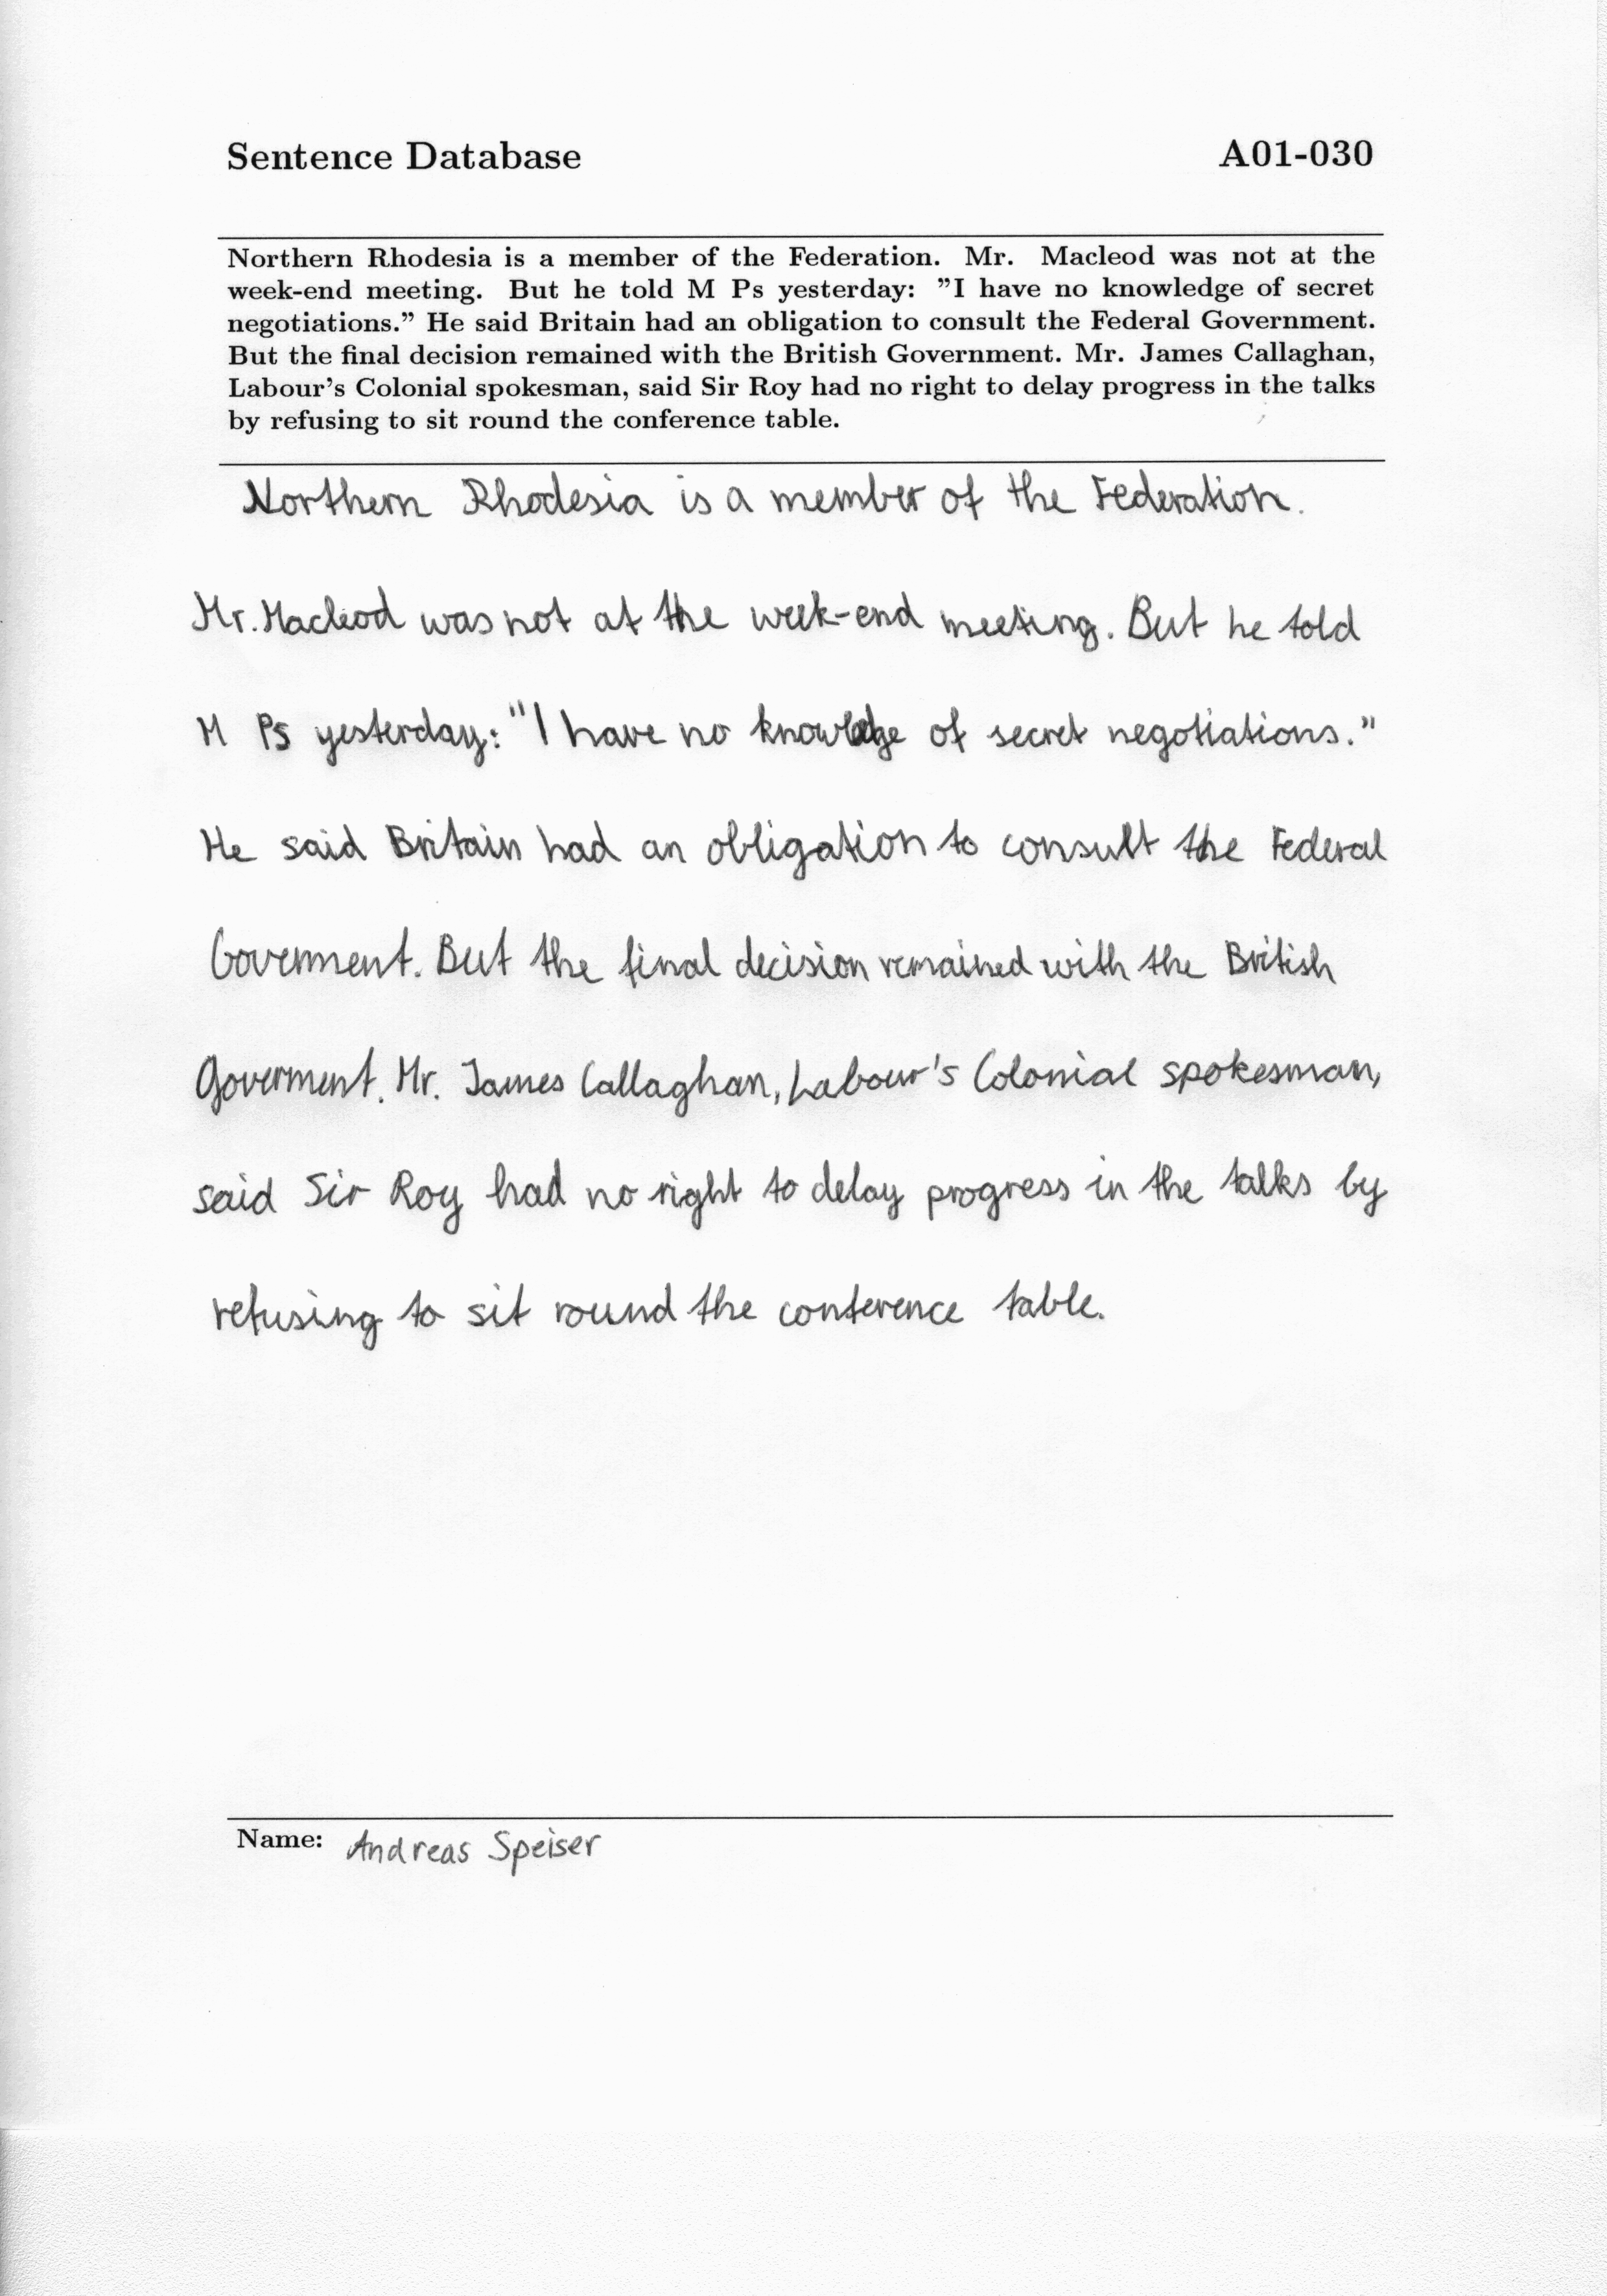 Sentence Database A01-030
Northern Rhodesia is a member of the Federation. Mr. Macleod was not at the
week-end meeting. But he told M Ps yesterday: ”I have no knowledge of secret
negotiations.” He said Britain had an obligation to consult the Federal Government.
But the final decision remained with the British Government. Mr. James Callaghan,
Labour’s Colonial spokesman, said Sir Roy had no right to delay progress in the talks
by refusing to sit round the conference table.
Northern Rhodesia is a member of the Federation.
Mr. Macleod was not at the week-end meeting. But he told
M Ps yesterday: "I have no knowledge of secret negotiations."
He said Britain had an obligation to consult the Federal
Government. But the final decision remained with the British
Goverment. Mr. James Callaghan, Labour's Colonial spokesman,
said Sir Roy had no right to delay progress in the talks by
refusing to sit round the conference table.
Name: Andreas Speiser